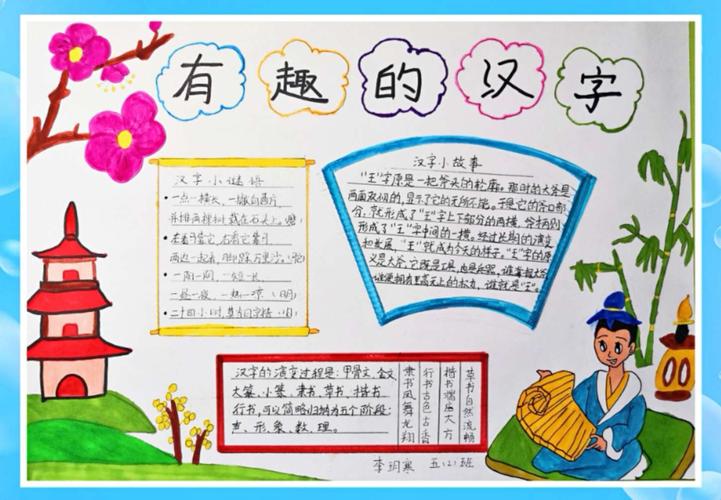 有趣的汉字
汉字小谜语
一点一横长，一撇到南片，
两边一起看，
一阴一阳，一短一长
一昼一夜，一热一凉（明）
汉字小故事
"王"字原是一把斧头的轮廓。那时的大斧是
两面双刃的，显示了它的无所不能。于是它的斧口部
分，就形成了"王"字上下部分的两横，斧柄则
形成了"王"字中间的一横。经过长期的演变
和发展，"王"就成为今天的样子。"王"字的原
义是大斧，它既是工具，也是兵器，谁掌握大斧
谁便拥有至高无上的权力，谁就是"王"。
汉字的演变过程是：甲骨文、金文
大篆、小篆、隶书、草书、楷书
行书，可以简略归纳为五个阶段：
声、形、象、数、理。
草书自然流畅
楷书端庄大方
行书古色古香
隶书凤舞龙翔
李玥寒 五（2）班